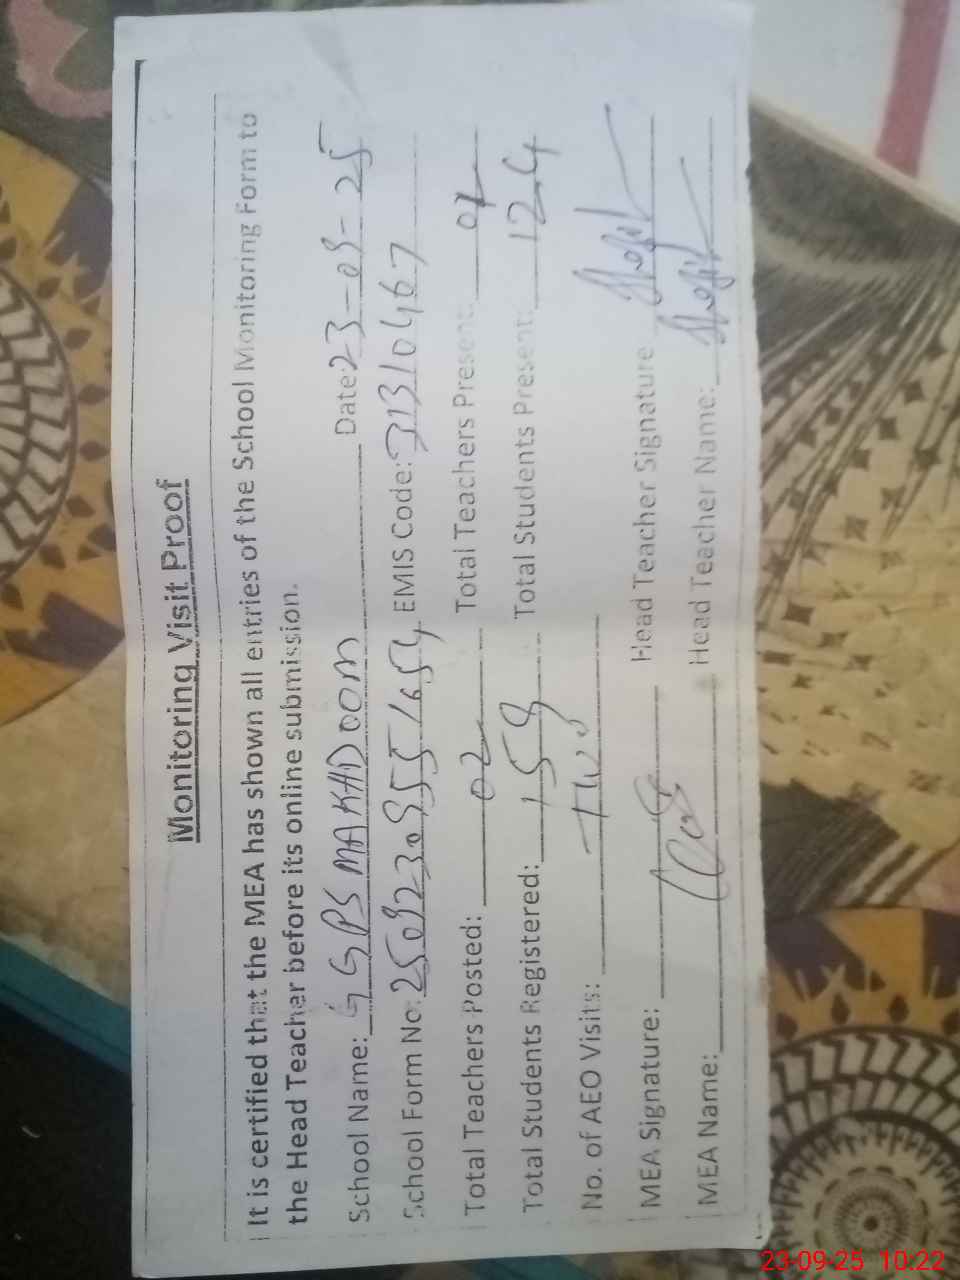 Monitoring Visit Proof
It is certified that the MEA has shown all entries of the School Monitoring Form to
the Head Teacher before its online submission.
School Name: GGPS MAKHDOOM Date: 23-09-25
School Form No: EMIS Code: 31310467
Total Teachers Posted: 02 Total Teachers Present: 02
Total Students Registered: 159 Total Students Present: 124
No. of AEO Visits: Two
MEA Signature: Head Teacher Signature
MEA Name: Head Teacher Name:
23-09-25 10:22